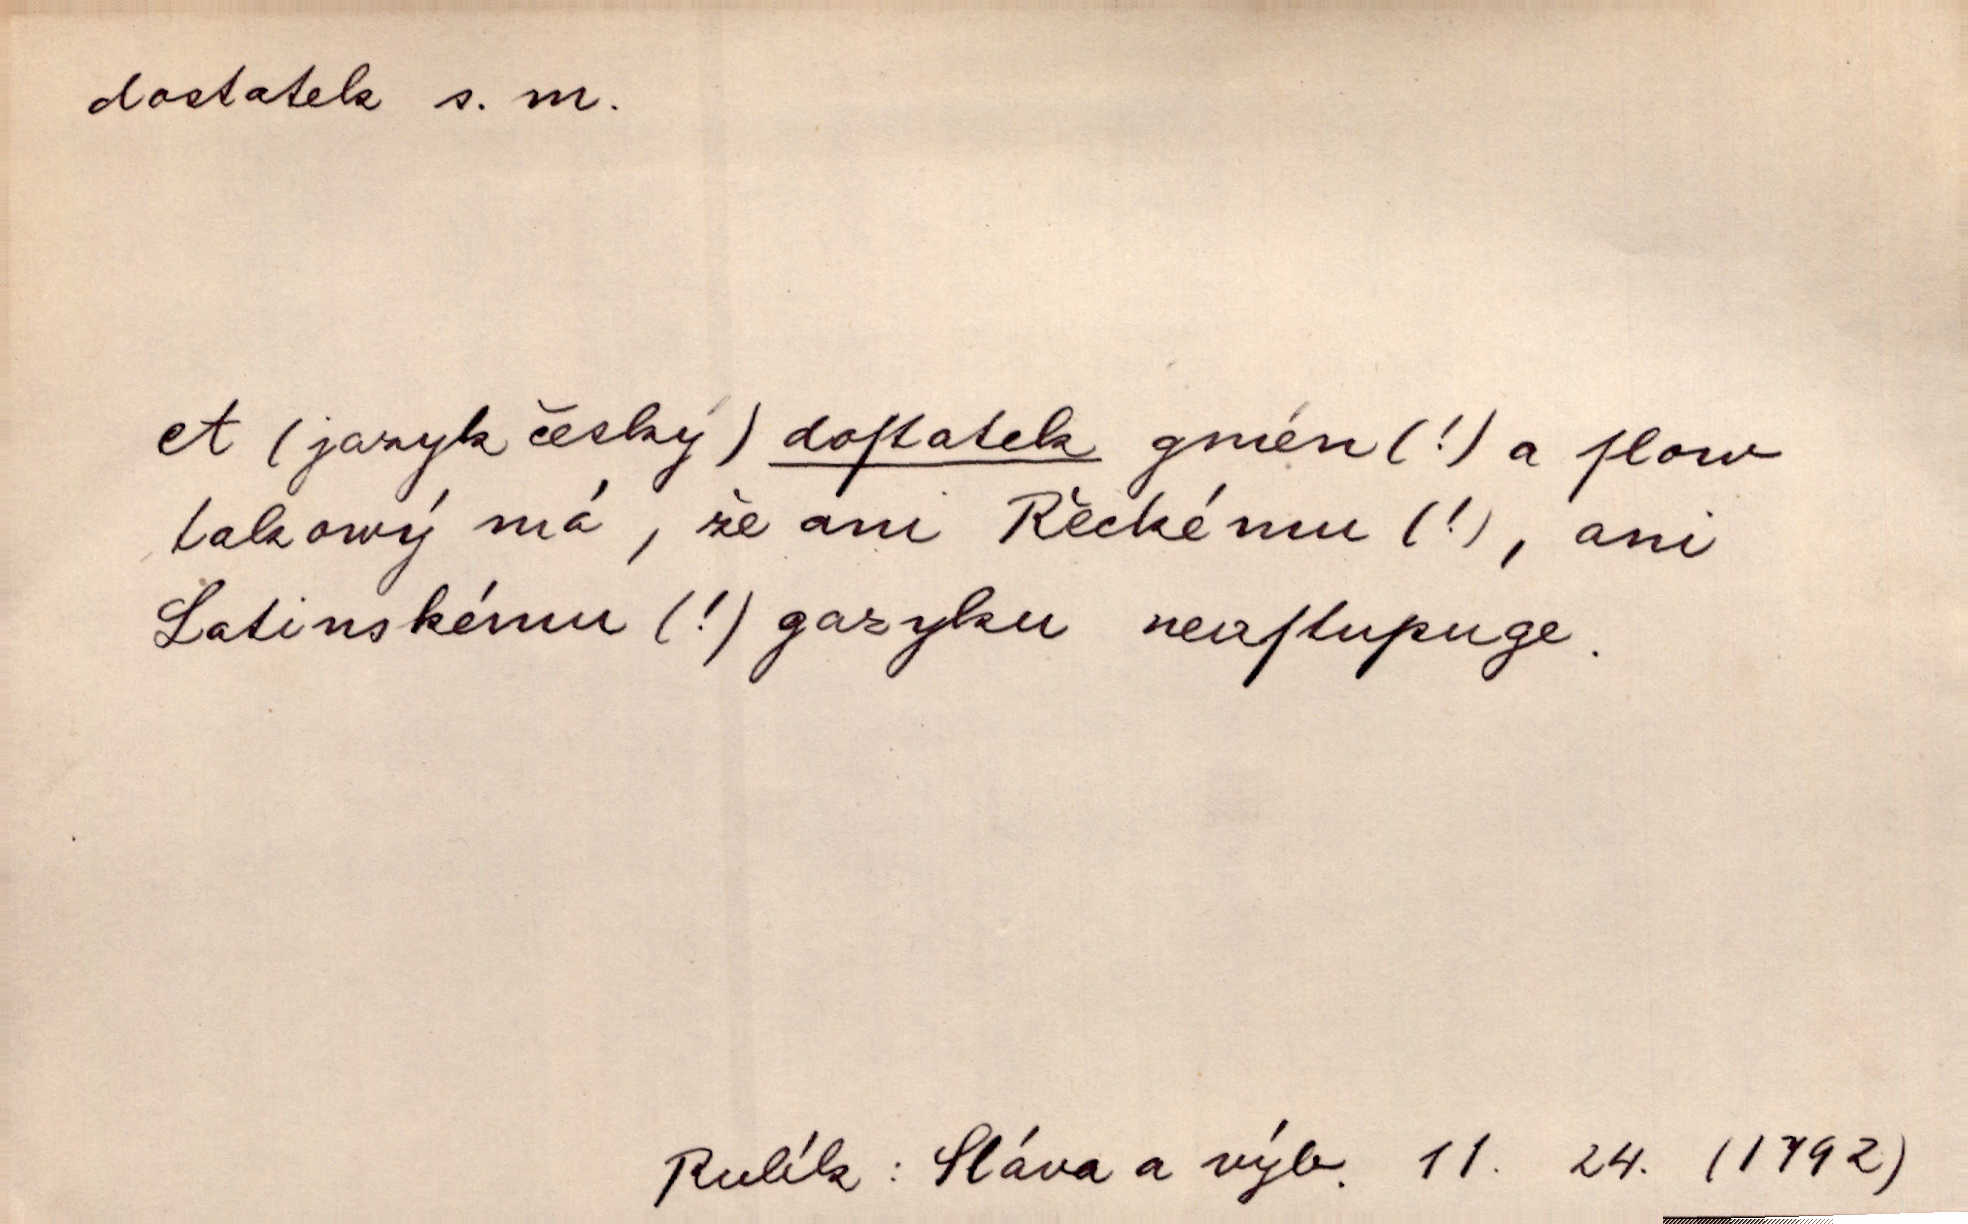 dostatek s. m.
et (jazyk český) doſtatek gmén (!) a ſlow
takowý má, že ani Řeckému (!), ani
Latinskému (!) gazyku neuſtupuge.
Rulík: Sláva a výb. 11. 24. (1792)